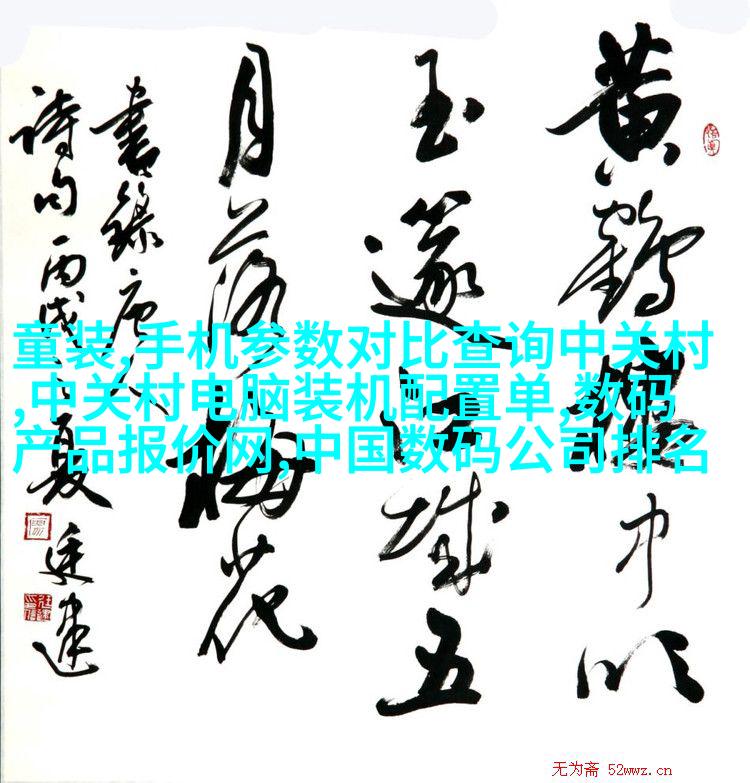 黄鶴樓中吹
玉篴江城五
月落梅花
書錄唐人
詩句丙戌夏廷建
童装,手机参数对比查询中关村
,中关村电脑装机配置单,数码
产品报价网,中国数码公司排名
无为斋 52wwz.cn